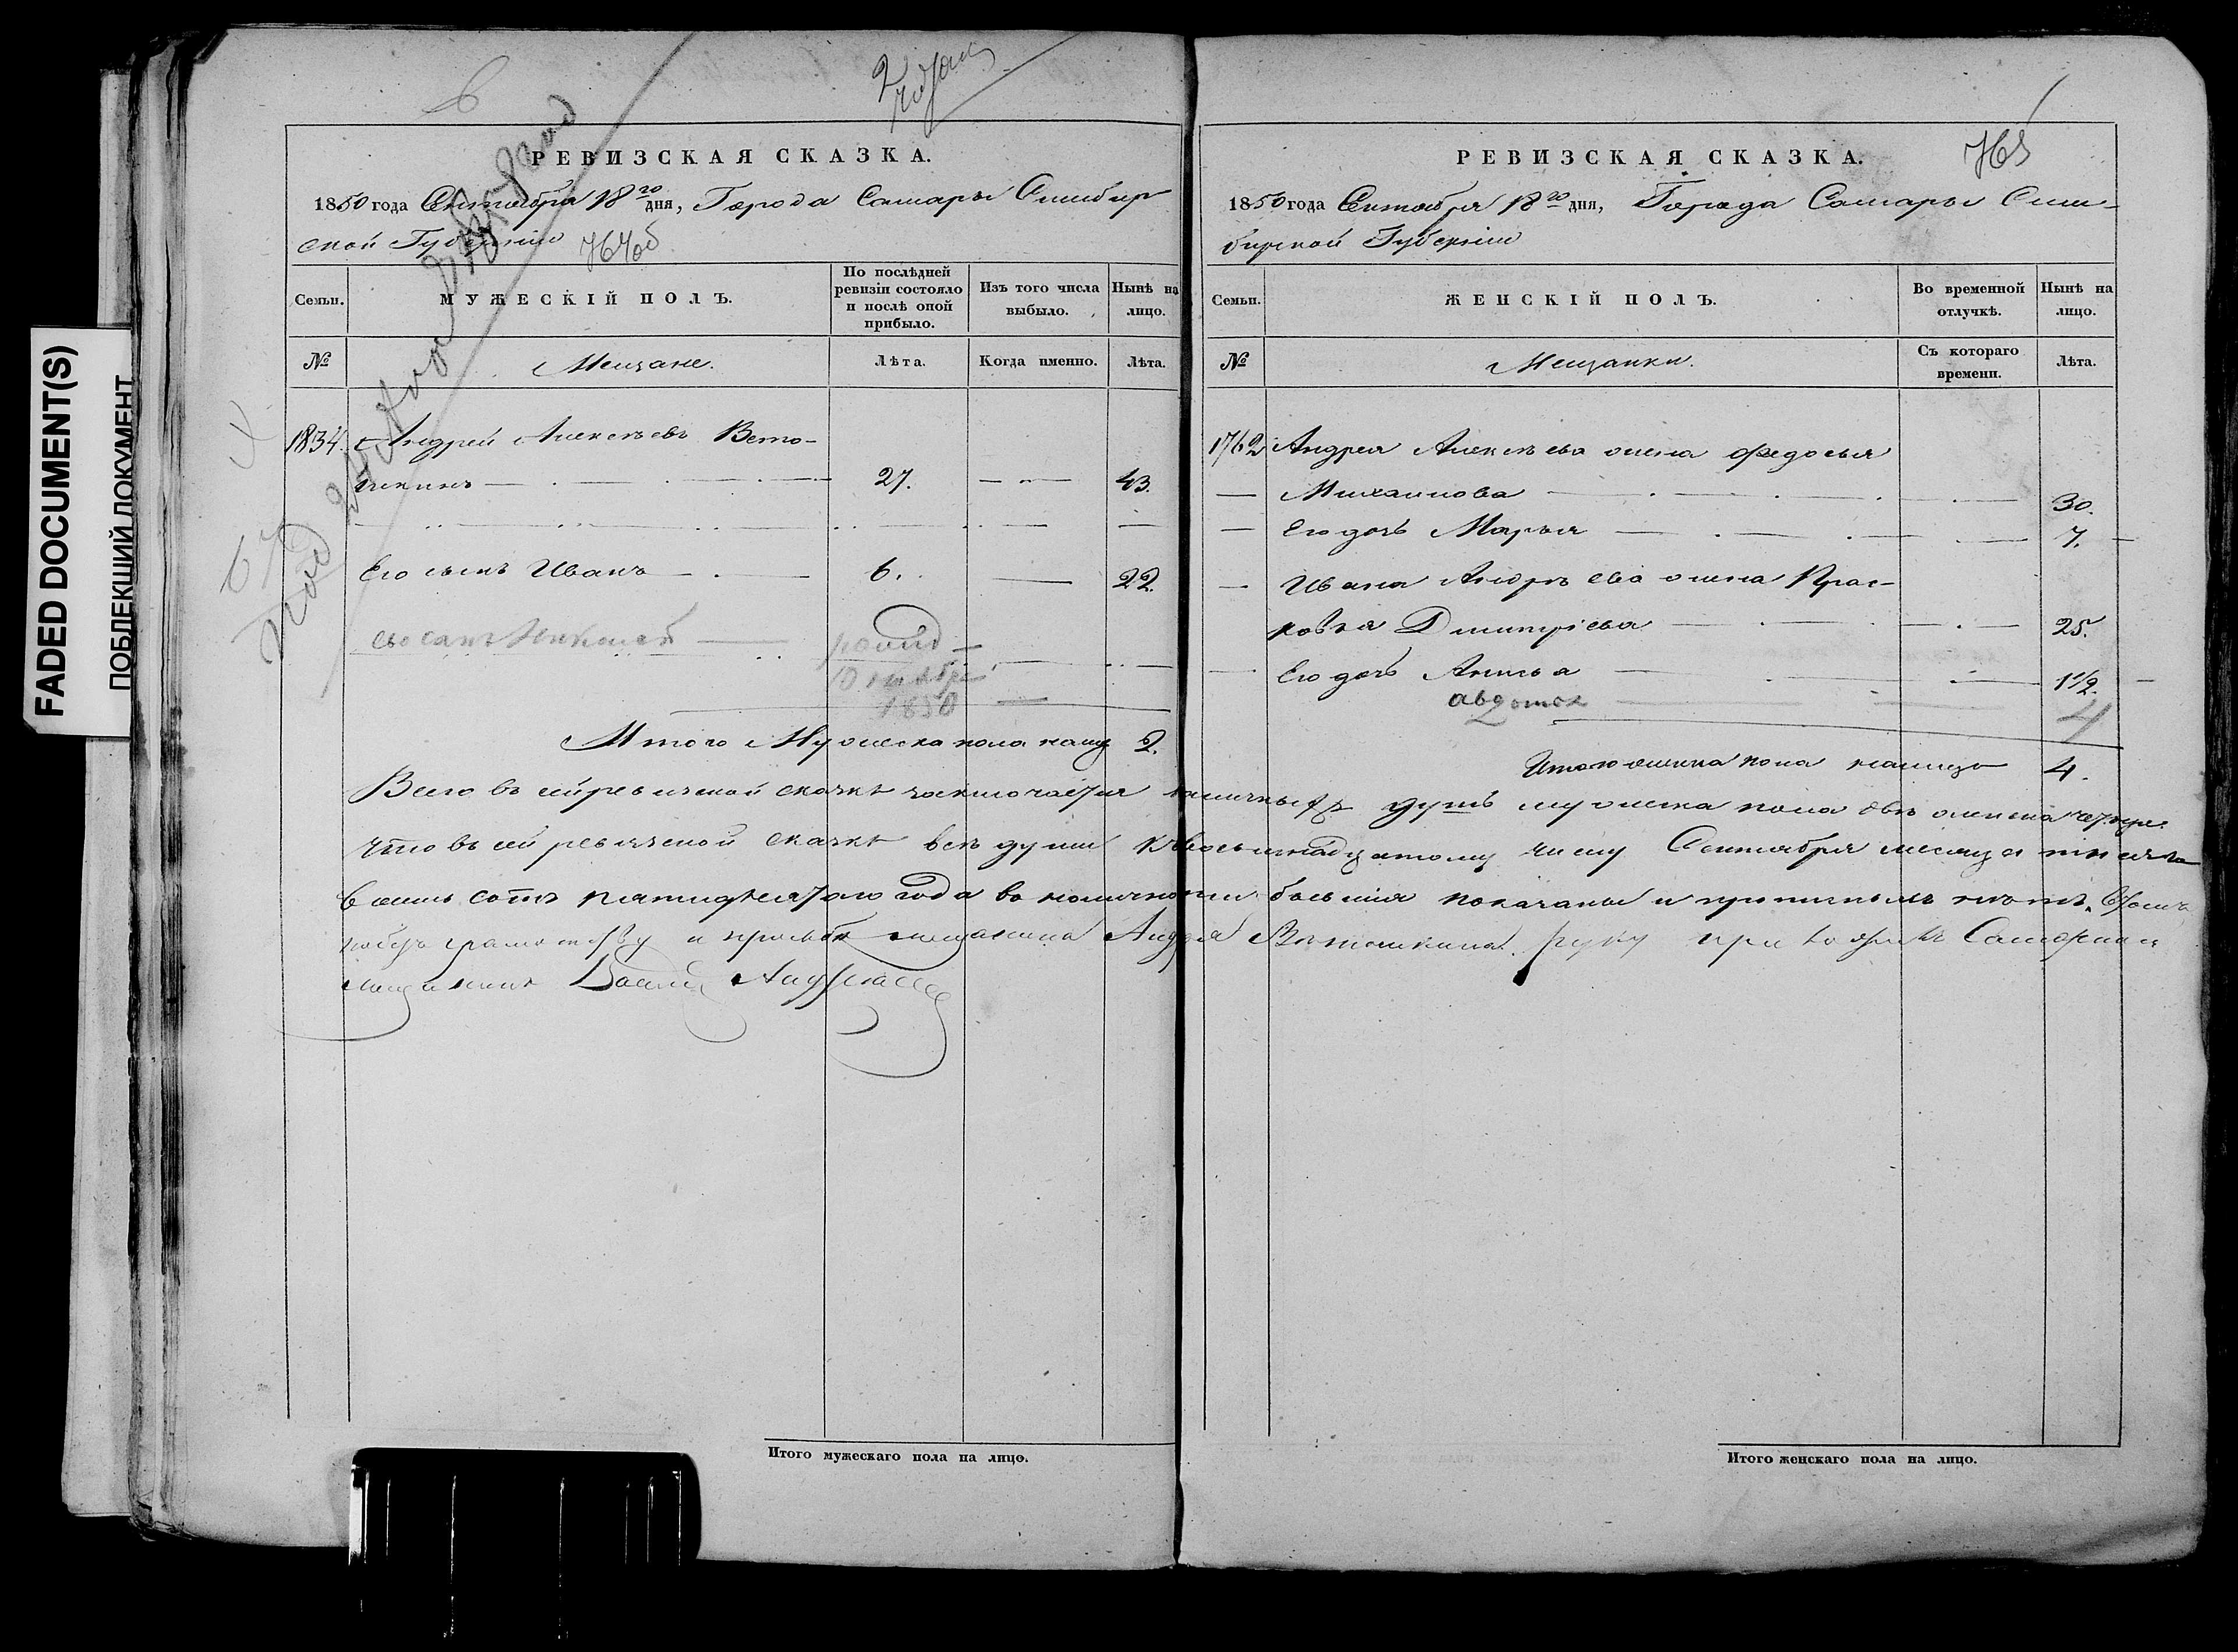 FADED DOCUMENT(S)
ПОБЛЕКШИЙ ДОКУМЕНТ
РЕВИЗСКАЯ СКАЗКА.
1850 года Сентября 18го дня, Города Самары Симбир
ской Губернiи
764об
Семьи.
МУЖЕСКIЙ ПОЛЪ.
По послѣдней ревизiи состояло и послѣ оной прибыло.
Изъ того числа выбыло.
Нынѣ на лицо.
№
Мещане.
Лѣта.
Когда именно.
Лѣта.
1834. Андрей Алексѣевъ Вето-
шкинъ 27. 43.
Его сынъ Иванъ 6. 22.
Николай
Октября
1850
Итого Мужеска пола налиц 2.
РЕВИЗСКАЯ СКАЗКА.
765
1850 года Сентября 18го дня, Города Самары Сим-
бирской Губернiи
Семьи.
ЖЕНСКIЙ ПОЛЪ.
Во временной отлучкѣ.
Нынѣ на лицо.
№
Мещанки.
Съ котораго времени.
Лѣта.
1762 Андрея Алексѣева жена Федосья
Михайлова 30.
Его дочь Марья 7.
Ивана Андрѣева жена Прас-
ковья Дмитрiева 25.
Его дочь Анисья 1 1/2.
Авдотья
4
Итого женска пола налицо 4.
Всего въ сей ревизской сказкѣ заключается наличныхъ душъ мужеска пола двѣ женска четыре.
Что въ сей ревизской сказкѣ всѣ души къ восьмнадцатому числу Сентября месяца тысяча
восемь сотъ пятидесятого года въ наличности бывшiя показаны и прописныхъ нѣтъ. Въ томъ
и прозьбе мещанина Андрея Ветошкина руку приложилъ Самарской
мещанинъ
Итого мужескаго пола на лицо.
Итого женскаго пола на лицо.